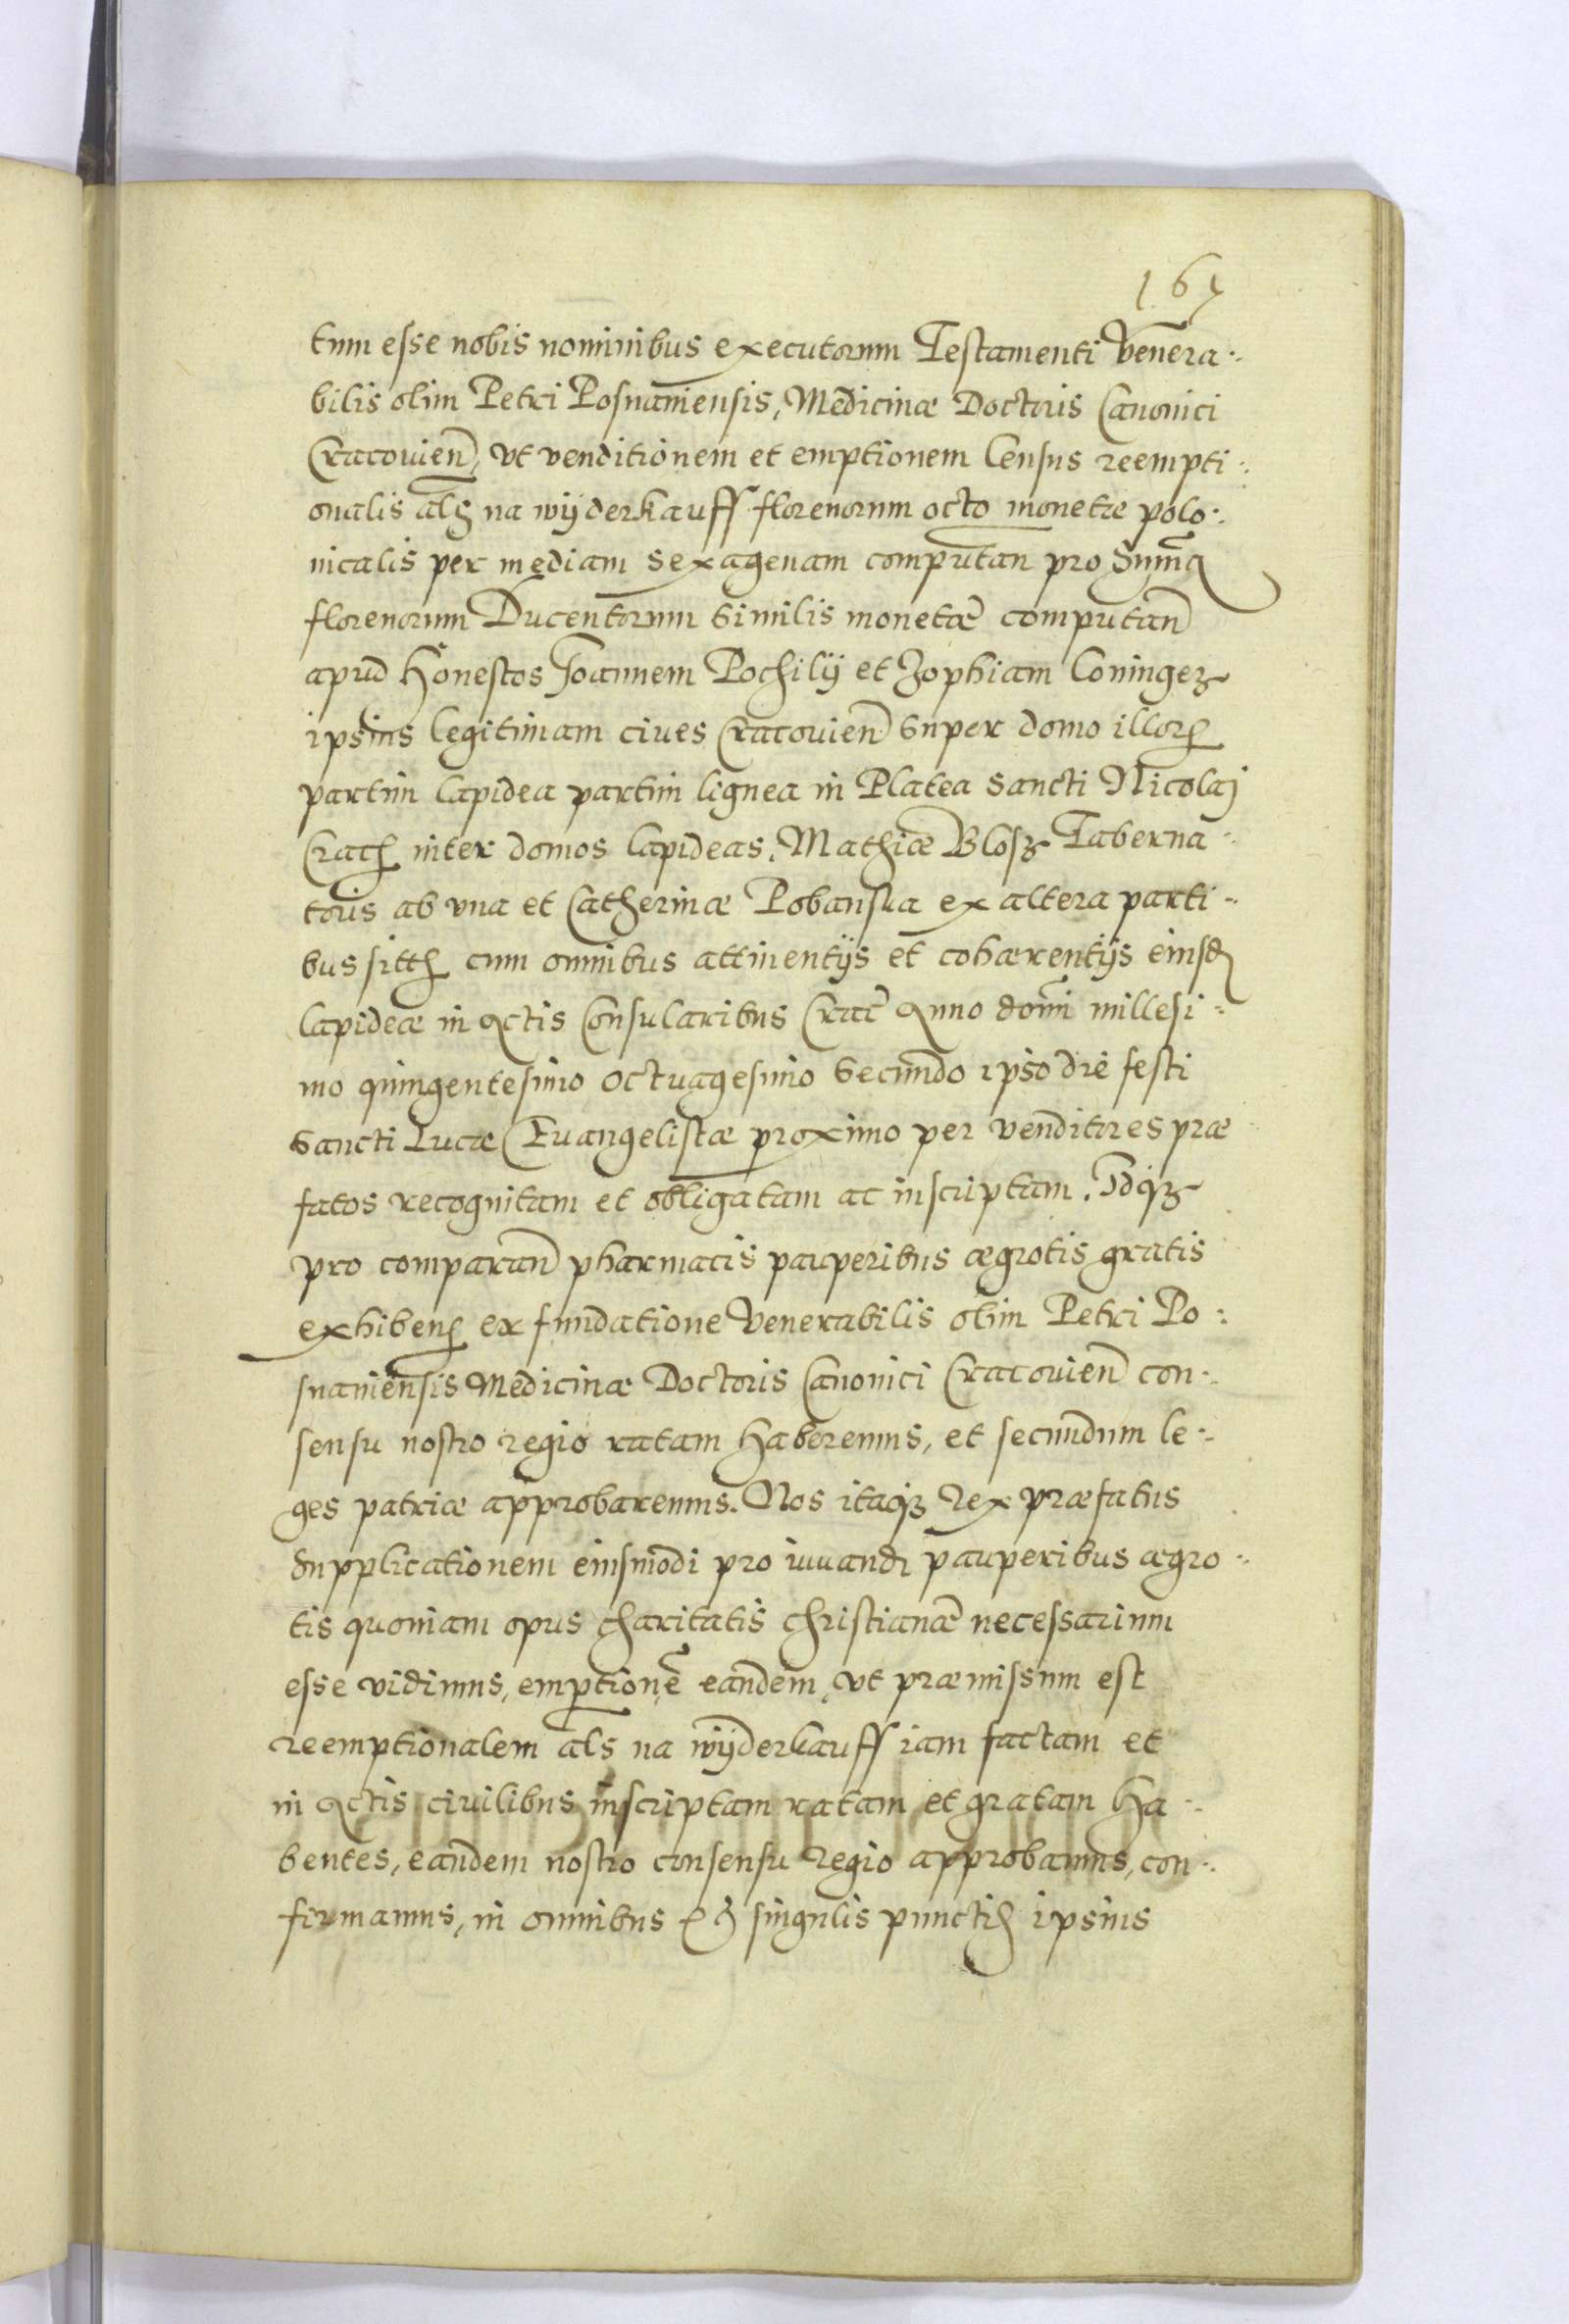 167
tum esse nobis nominibus executorum Testamenti Venera-
bilis olim Petri Posnaniensis, Medicinæ Doctoris Canonici
Cracouien, vt venditionem et emptionem Census reempti-
onalis als na wÿderkauff florenorum octo monetæ polo-
nicalis per mediam sexagenam computan pro Summa
florenorum Ducentorum similis monetæ computan
apud Honestos Joannem Pochilÿ et Zophiam
ipsius legitimam ciues Cracouien super domo illor
partim lapidea partim lignea in Platea Sancti Nicolaj
Crac inter domos lapideas, Mathiæ Blosz Taberna-
toris ab vna et Catherinæ Pobanska ex altera parti-
bus sitt cum omnibus attinentÿs et cohærentÿs eiusd
lapideæ in actis Consularibus Crac Anno domi millesi-
mo quingentesimo octuagesimo secundo ipso die festi
Sancti Lucæ Euangelistæ proximo per venditores præ
fatos recognitam et obligatam ac inscriptam. Idqz
pro comparan pharmacis pauperibus ægrotis gratis
exhiben ex fundatione Venerabilis olim Petri Po-
snaniensis Medicinæ Doctoris Canonici Cracouien con-
sensu nostro regio ratam haberemus, et secundum le-
ges patriæ approbaremus. Nos itaqz rex præfatus
Supplicationem eiusmodi pro iuuand pauperibus ægro-
tis quoniam opus charitatis christianæ necessarium
esse vidimus, emptione eandem, vt præmissum est
reemptionalem als na wÿderkauff iam factam et
in actis ciuilibus inscriptam ratam et gratam ha-
bentes, eandem nostro consensu regio approbamus, con-
firmamus, in omnibus et singulis punctis ipsius